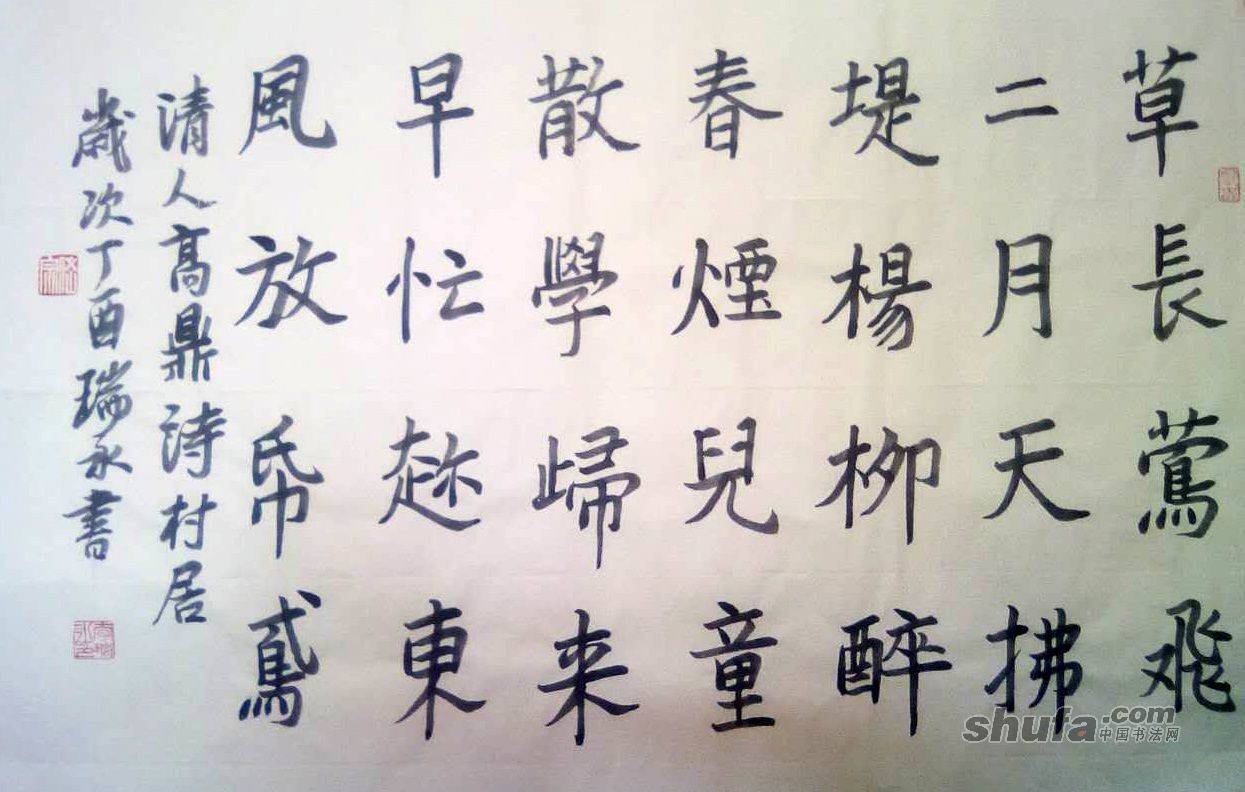 草長鶯飛
二月天拂
堤楊柳醉
春煙兒童
散學歸来
早忙趂東
風放帋鳶
清人高鼎詩村居
歲次丁酉瑞永書
shufa.com
中国书法网